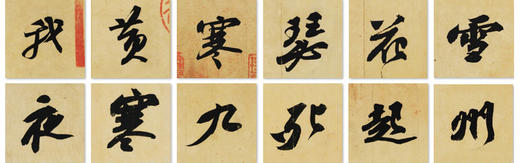 我黄寒瑟花雪
夜寒九死起州